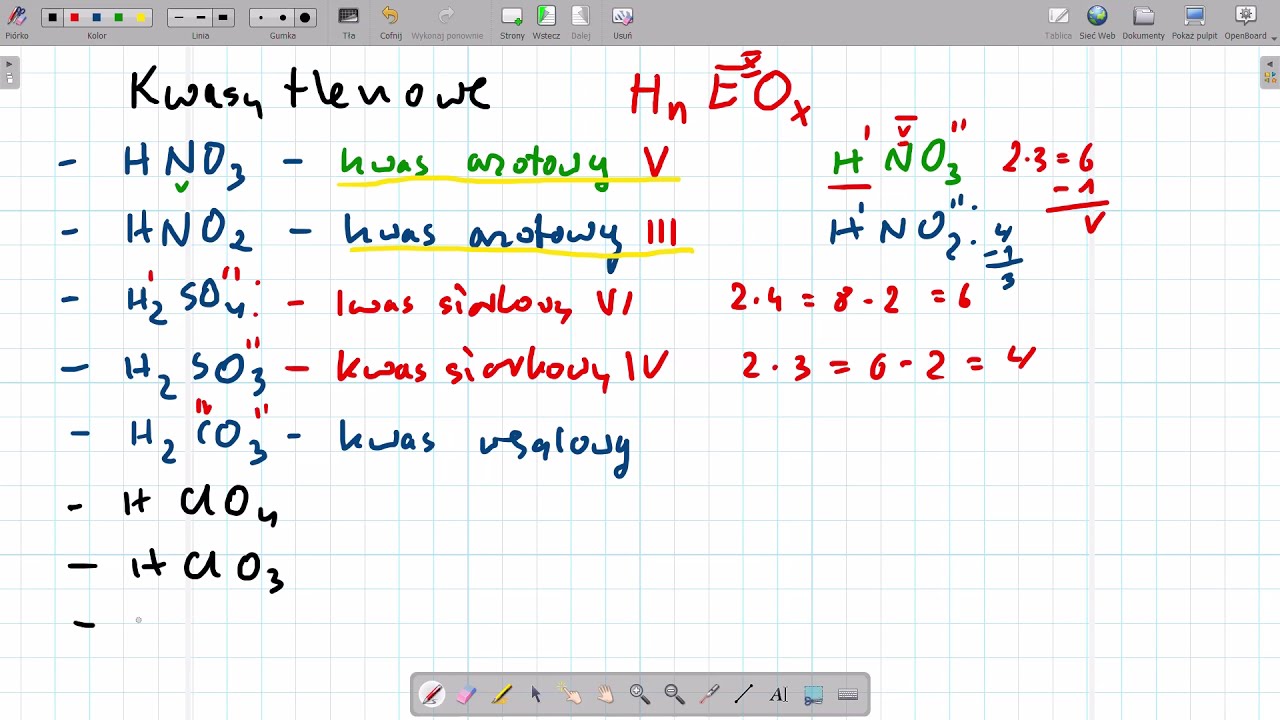 Piórko Kolor Linia Gumka Tła Cofnij Wykonaj ponownie Strony Wstecz Dalej Usuń Tablica Sieć Web Dokumenty Pokaż pulpit OpenBoard
Kwasy tlenowe HₙEOₓ
x
- HNO₃ - kwas azotowy V
V
H NO₃ 2·3=6
I V II
-1
V
- HNO₂ - kwas azotowy III
H NO₂
I II
4
-1
3
I II
- H₂SO₄ - kwas siarkowy VI 2·4=8-2=6
II
- H₂SO₃ - kwas siarkowy IV 2·3=6-2=4
IV II
- H₂CO₃ - kwas węglowy
- HClO₄
- HClO₃
-
AI